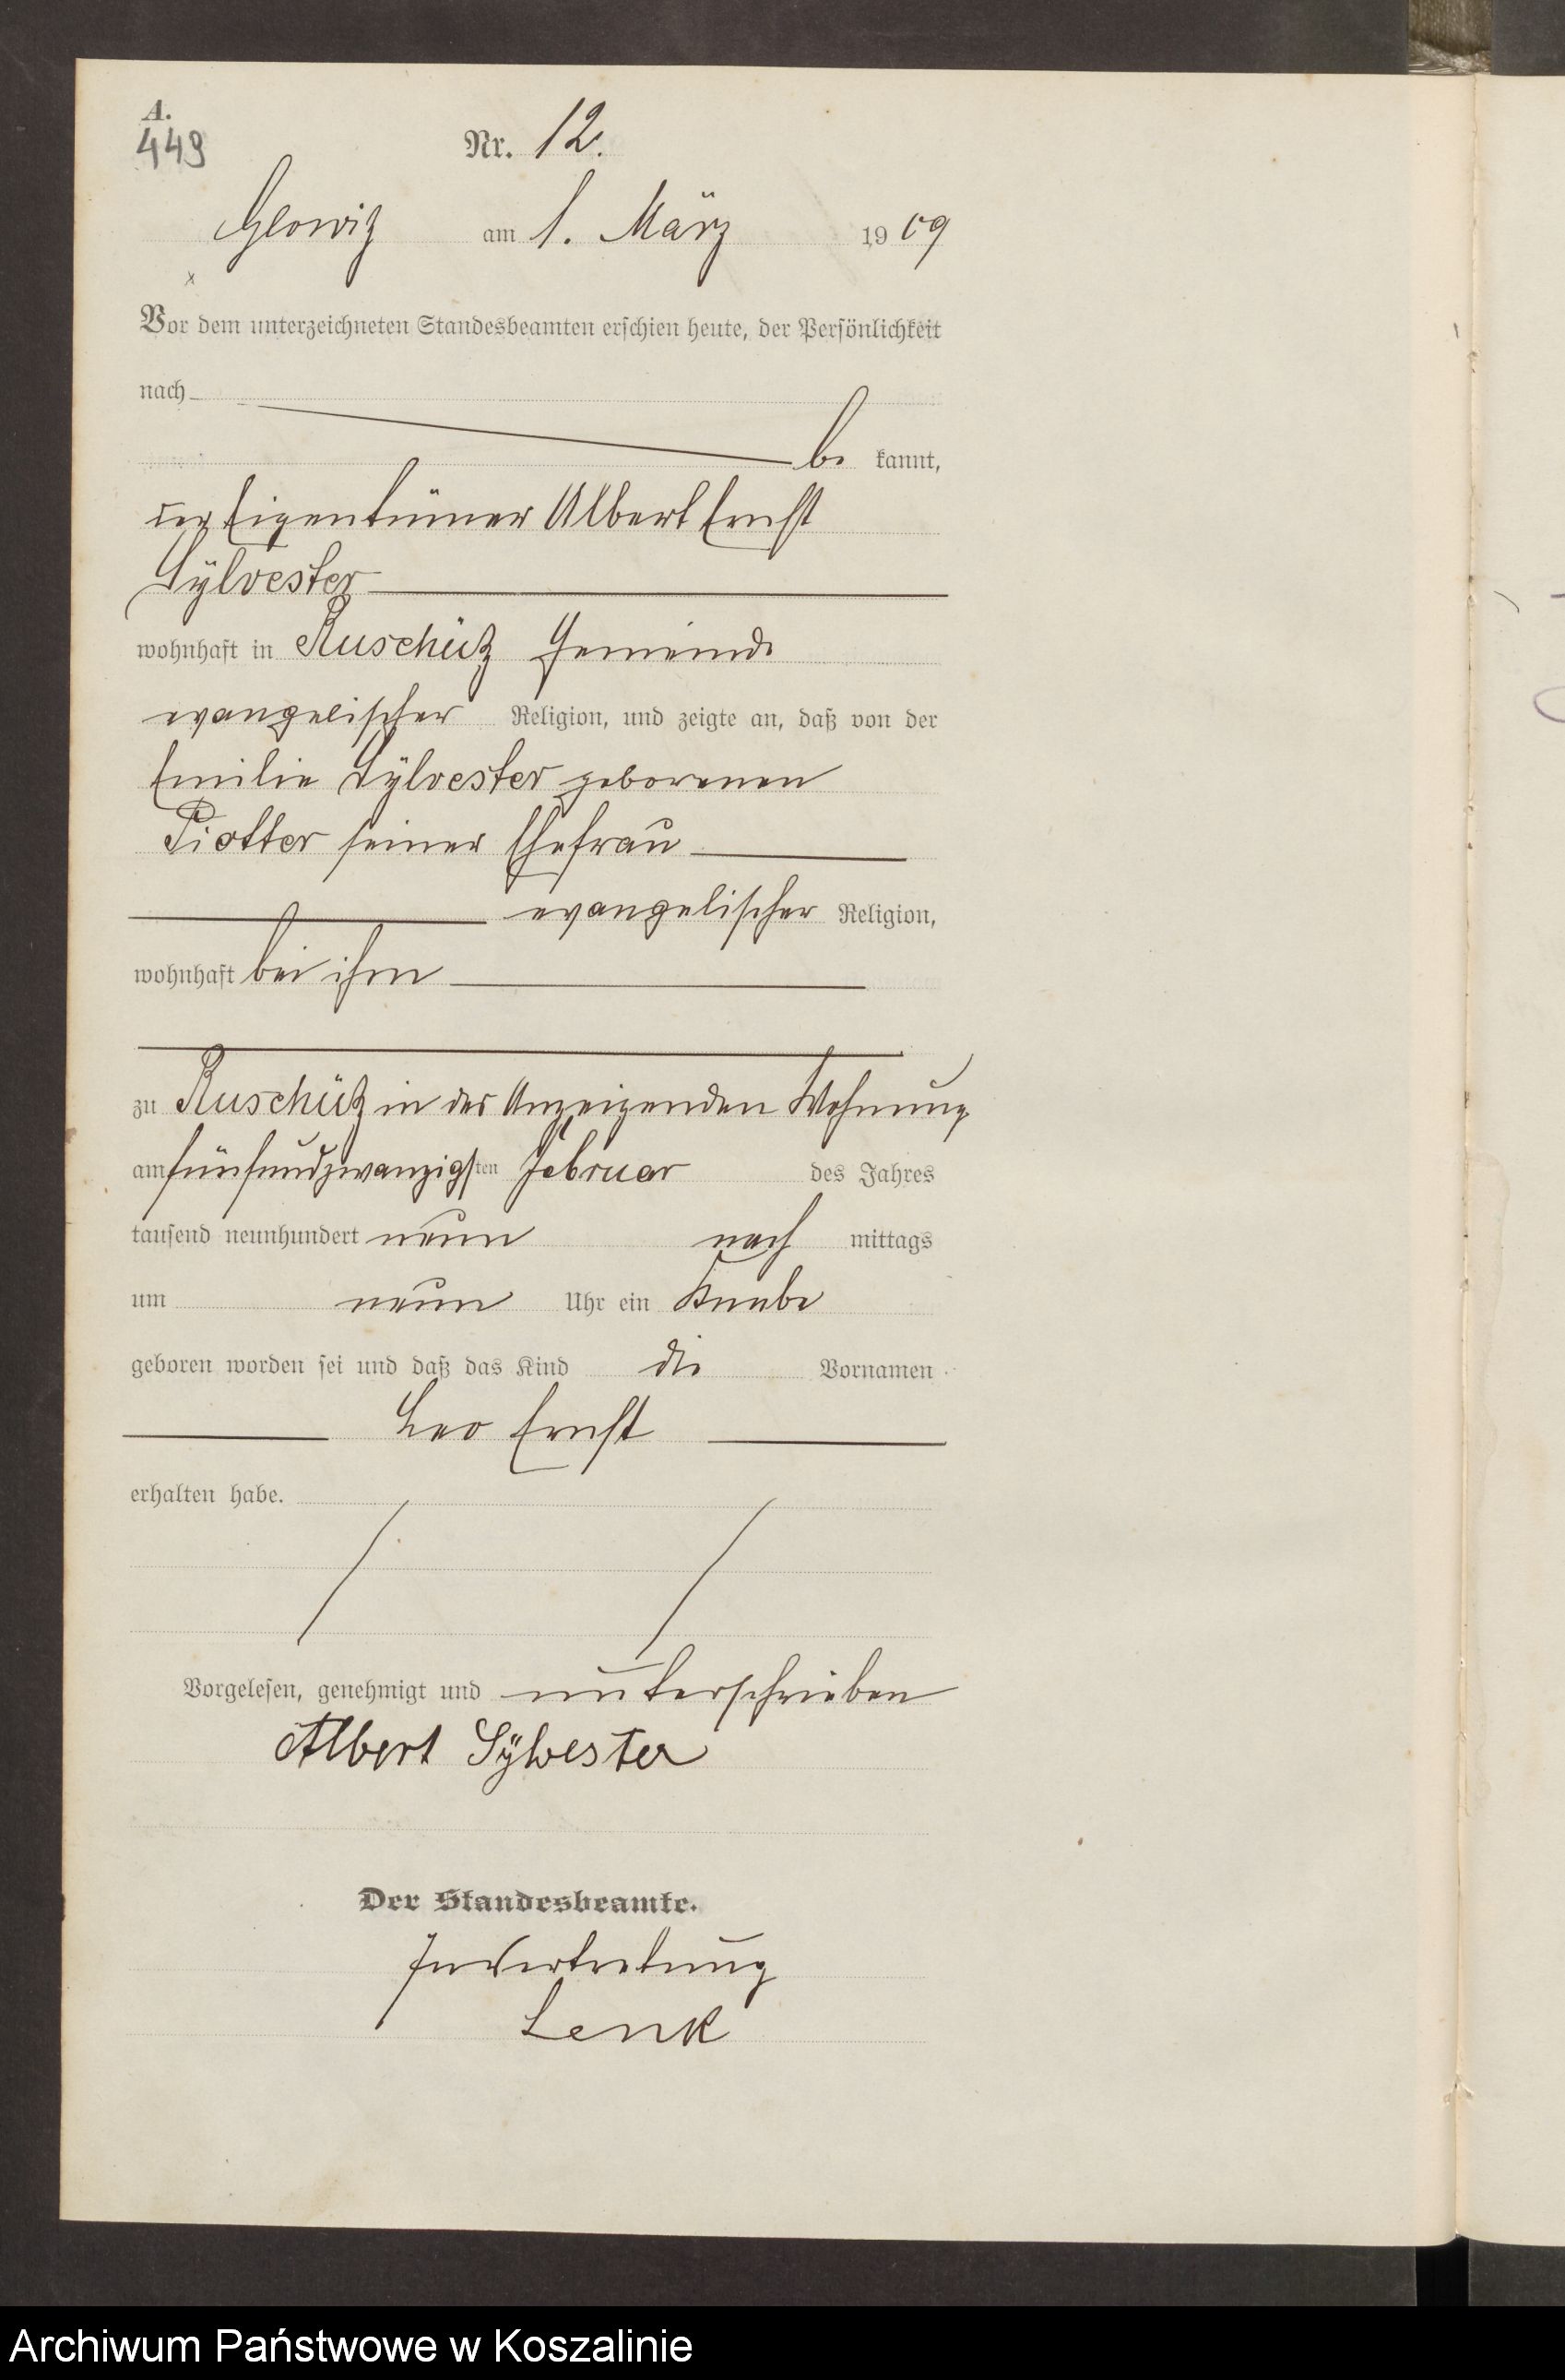 A.
449
Nr. 12.
Glowitz am 1. März 1909
Vor dem unterzeichneten Standesbeamten erschien heute, der Persönlichkeit
nach
be kannt,
der Eigentümer Albert Ernst
Sylvester
wohnhaft in Ruschütz Gemeinde
evangelischer Religion, und zeigte an, daß von der
Emilie Sylvester geborenen
Piotter seiner Ehefrau
evangelischer Religion,
wohnhaft bei ihm
zu Ruschütz in des Anzeigenden Wohnung
am fünfundzwanzigsten Februar des Jahres
tausend neunhundert neun nach mittags
um neun Uhr ein Knabe
geboren worden sei und daß das Kind die Vornamen
Leo Ernst
erhalten habe.
Vorgelesen, genehmigt und unterschrieben
Albert Sylvester
Der Standesbeamte.
In Vertretung
Lenk
Archiwum Państwowe w Koszalinie